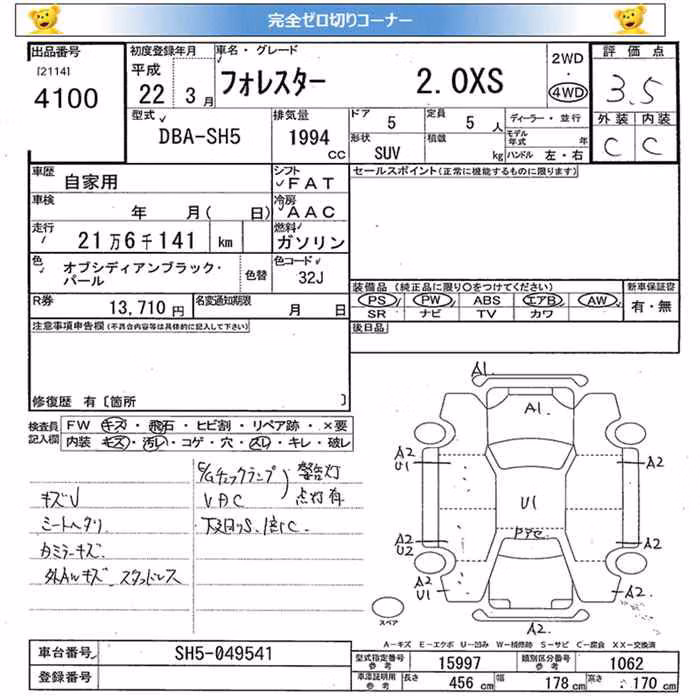 完全ゼロ切りコーナー
出品番号
[2114]
4100
初度登録年月
平成
22 3月
車名・グレード
フォレスター 2.0XS
2WD
・
4WD
評価点
3.5
外装 内装
C C
型式
DBA-SH5
排気量
1994
cc
ドア
5
定員
5 人
形状
SUV
積載
kg
ディーラー・並行
モデル年式 年
ハンドル 左・右
車歴
自家用
シフト
FAT
車検
年 月( 日)
冷房
AAC
走行
21万6千141 km
燃料
ガソリン
色
オブシディアンブラック・
パール
色替
色コード
32J
R券
13,710円
名変通知期限
月 日
セールスポイント(正常に機能するものに限ります)
装備品 (純正品に限り○をつけてください)
PS PW ABS エアB AW
SR ナビ TV カワ
新車保証書
有・無
後日品
注意事項申告欄(不具合内容等は具体的に記入して下さい)
修復歴 有〔箇所 〕
検査員
記入欄
FW キズ・飛石・ヒビ割・リペア跡・×要
内装 キズ・汚レ・コゲ・穴・スレ・キレ・破レ
E/Gチェックランプ 警告灯
VDC 点灯有
キズU
シートヘタリ
下廻りS、C
外AWキズ スタッドレス
A1
A1
A2
U1
A2
U1
A2
U2
A2
A2
U1
A2
A2
スペア
A-キズ E-エクボ U-凹み W-補修跡 S-サビ C-腐食 XX-交換済
車台番号
SH5-049541
登録番号
型式指定番号
参考
15997
類別区分番号
参考
1062
車庫証明用
参考
長さ 456 cm 幅 178 cm 高さ 170 cm